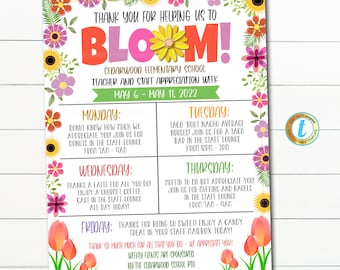 THANK YOU FOR HELPING US TO
BLOOM!
CEDARWOOD ELEMENTARY SCHOOL
TEACHER AND STAFF APPRECIATION WEEK
MAY 6 - MAY 11, 2022
MONDAY:
DONUT KNOW HOW MUCH WE
APPRECIATE YOU! JOIN US FOR
DONUTS IN THE STAFF LOUNGE
FROM 7AM - 9AM
TUESDAY:
TACO 'BOUT NACHO AVERAGE
NURSES! JOIN US FOR A TACO
BAR IN THE STAFF LOUNGE
FROM 12PM - 2PM
WEDNESDAY:
THANKS A LATTE FOR ALL YOU DO!
ENJOY A GOURMET COFFEE
CART IN THE STAFF LOUNGE
ALL DAY TODAY!
THURSDAY:
MUFFIN TO DO BUT APPRECIATE YOU!
JOIN US FOR MUFFINS AND BAGELS
IN THE STAFF LOUNGE
FROM 7AM - 9AM
FRIDAY: THANKS FOR BEING SO SWEET! ENJOY A CANDY
TREAT IN YOUR STAFF MAILBOX TODAY!
THANKS SO MUCH FOR ALL THAT YOU DO - WE APPRECIATE YOU!
WEEKLY EVENTS ARE SPONSORED
BY THE CEDARWOOD SCHOOL PTO
t